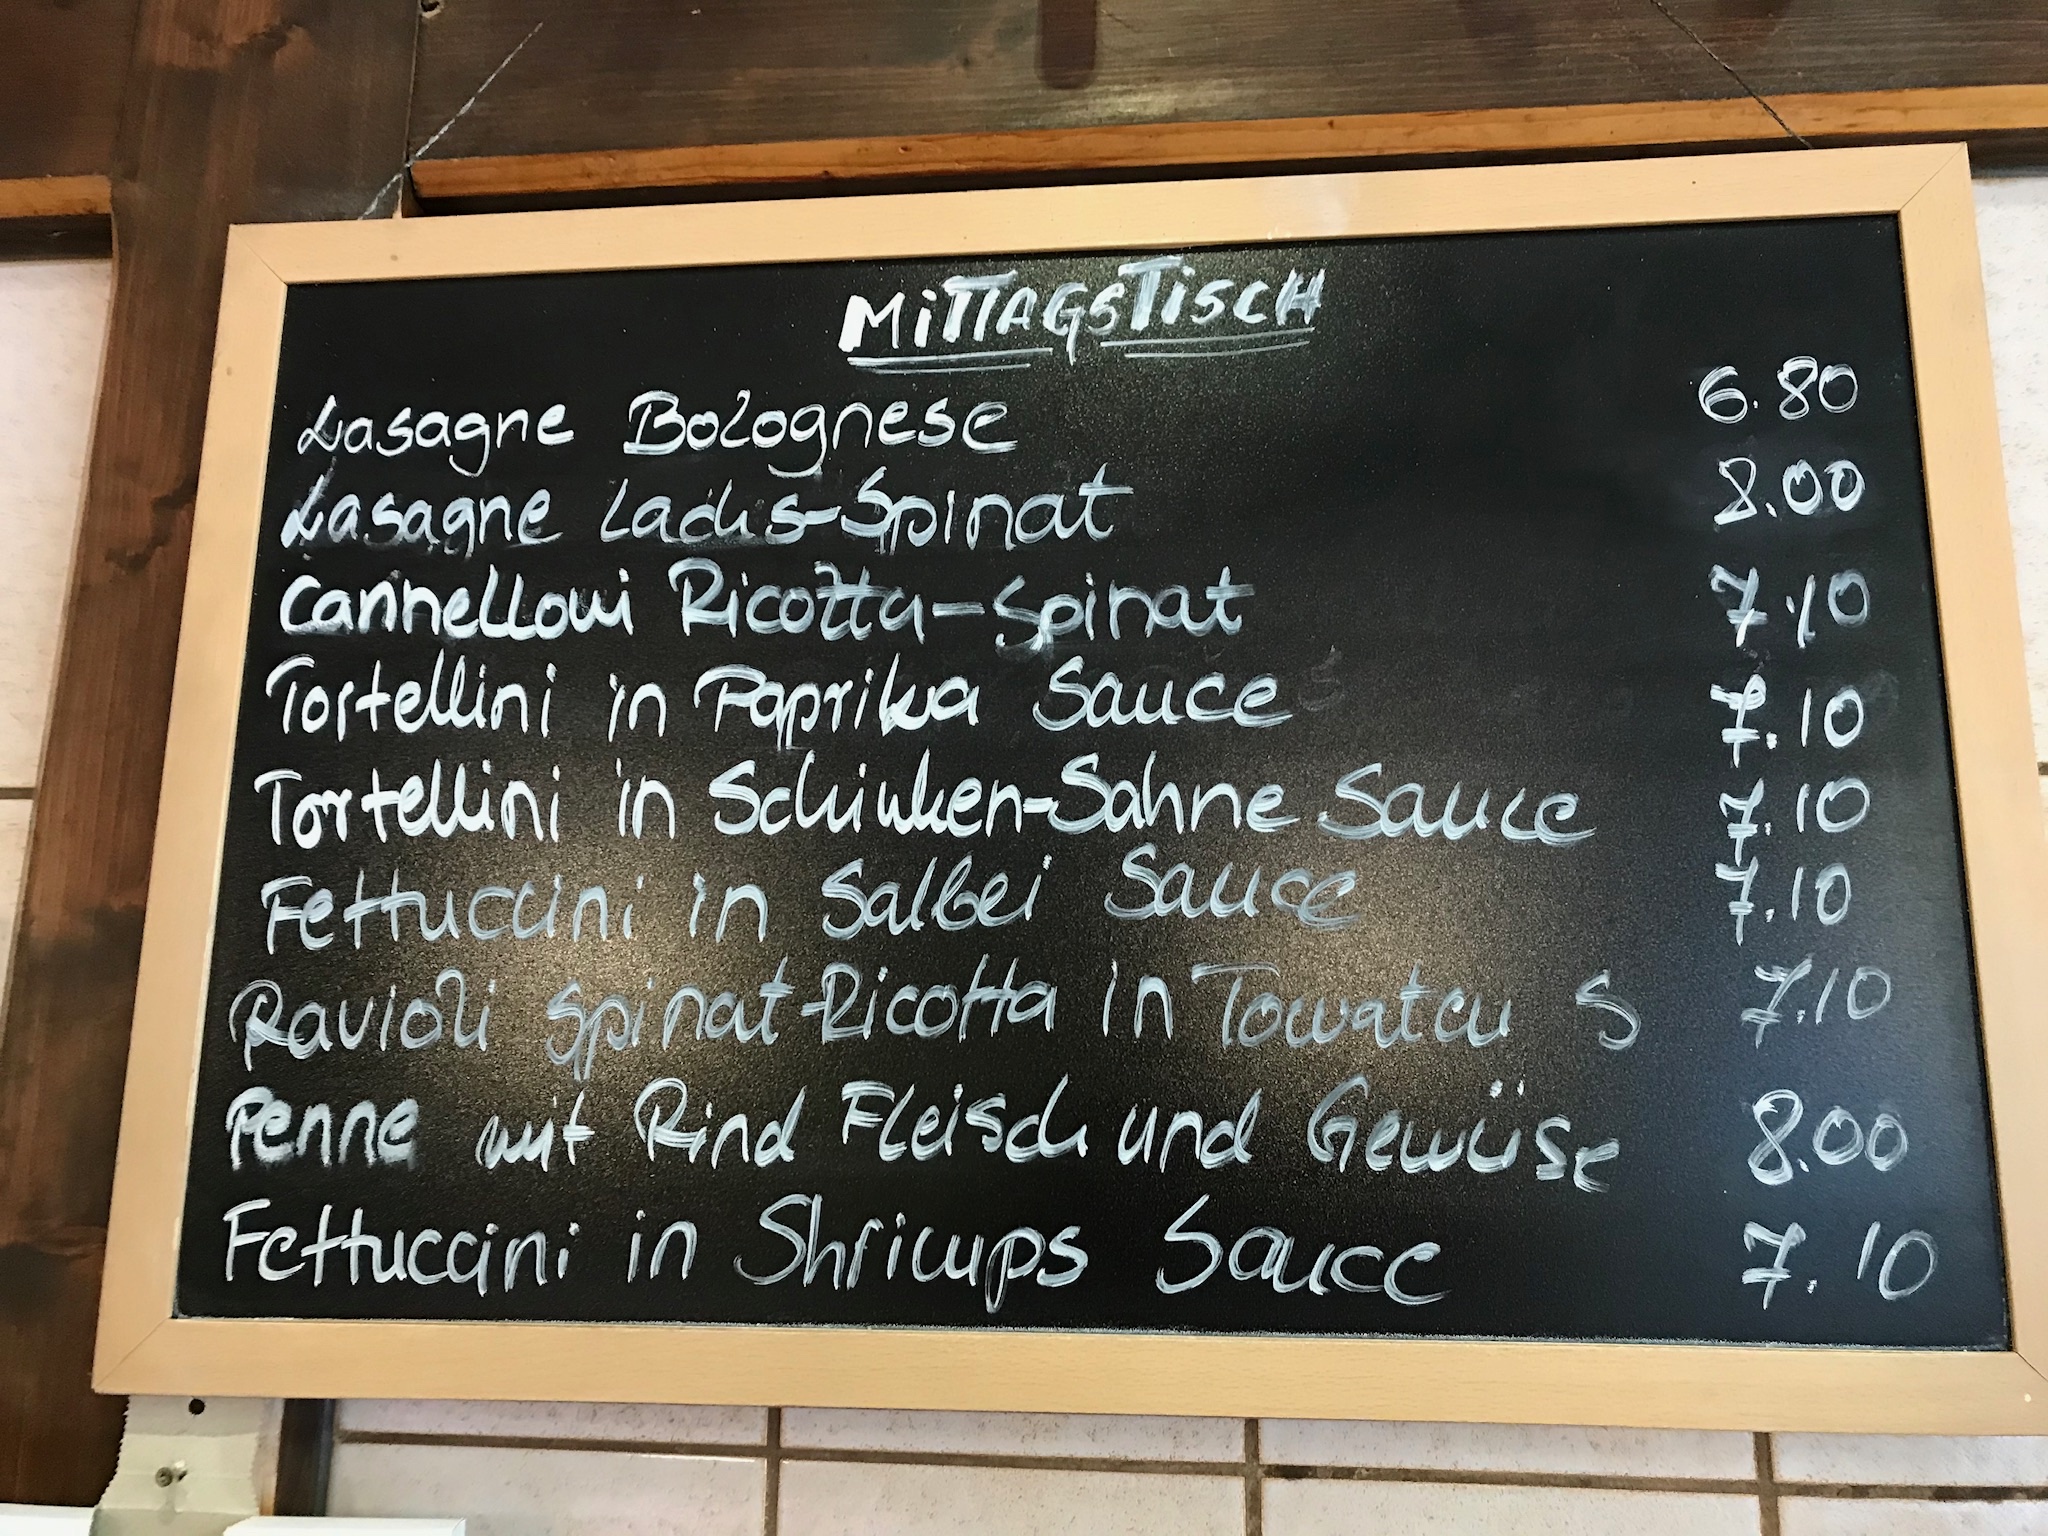 MITTAGSTISCH
Lasagne Bolognese 6.80
Lasagne Lachs-Spinat 8.00
Cannelloni Ricotta-Spinat 7.10
Tortellini in Paprika Sauce 7.10
Tortellini in Schinken-Sahne Sauce 7.10
Fettuccini in Salbei Sauce 7.10
Ravioli Spinat-Ricotta in Tomaten S 7.10
Penne mit Rind Fleisch und Gewüse 8.00
Fettuccini in Shrimps Sauce 7.10